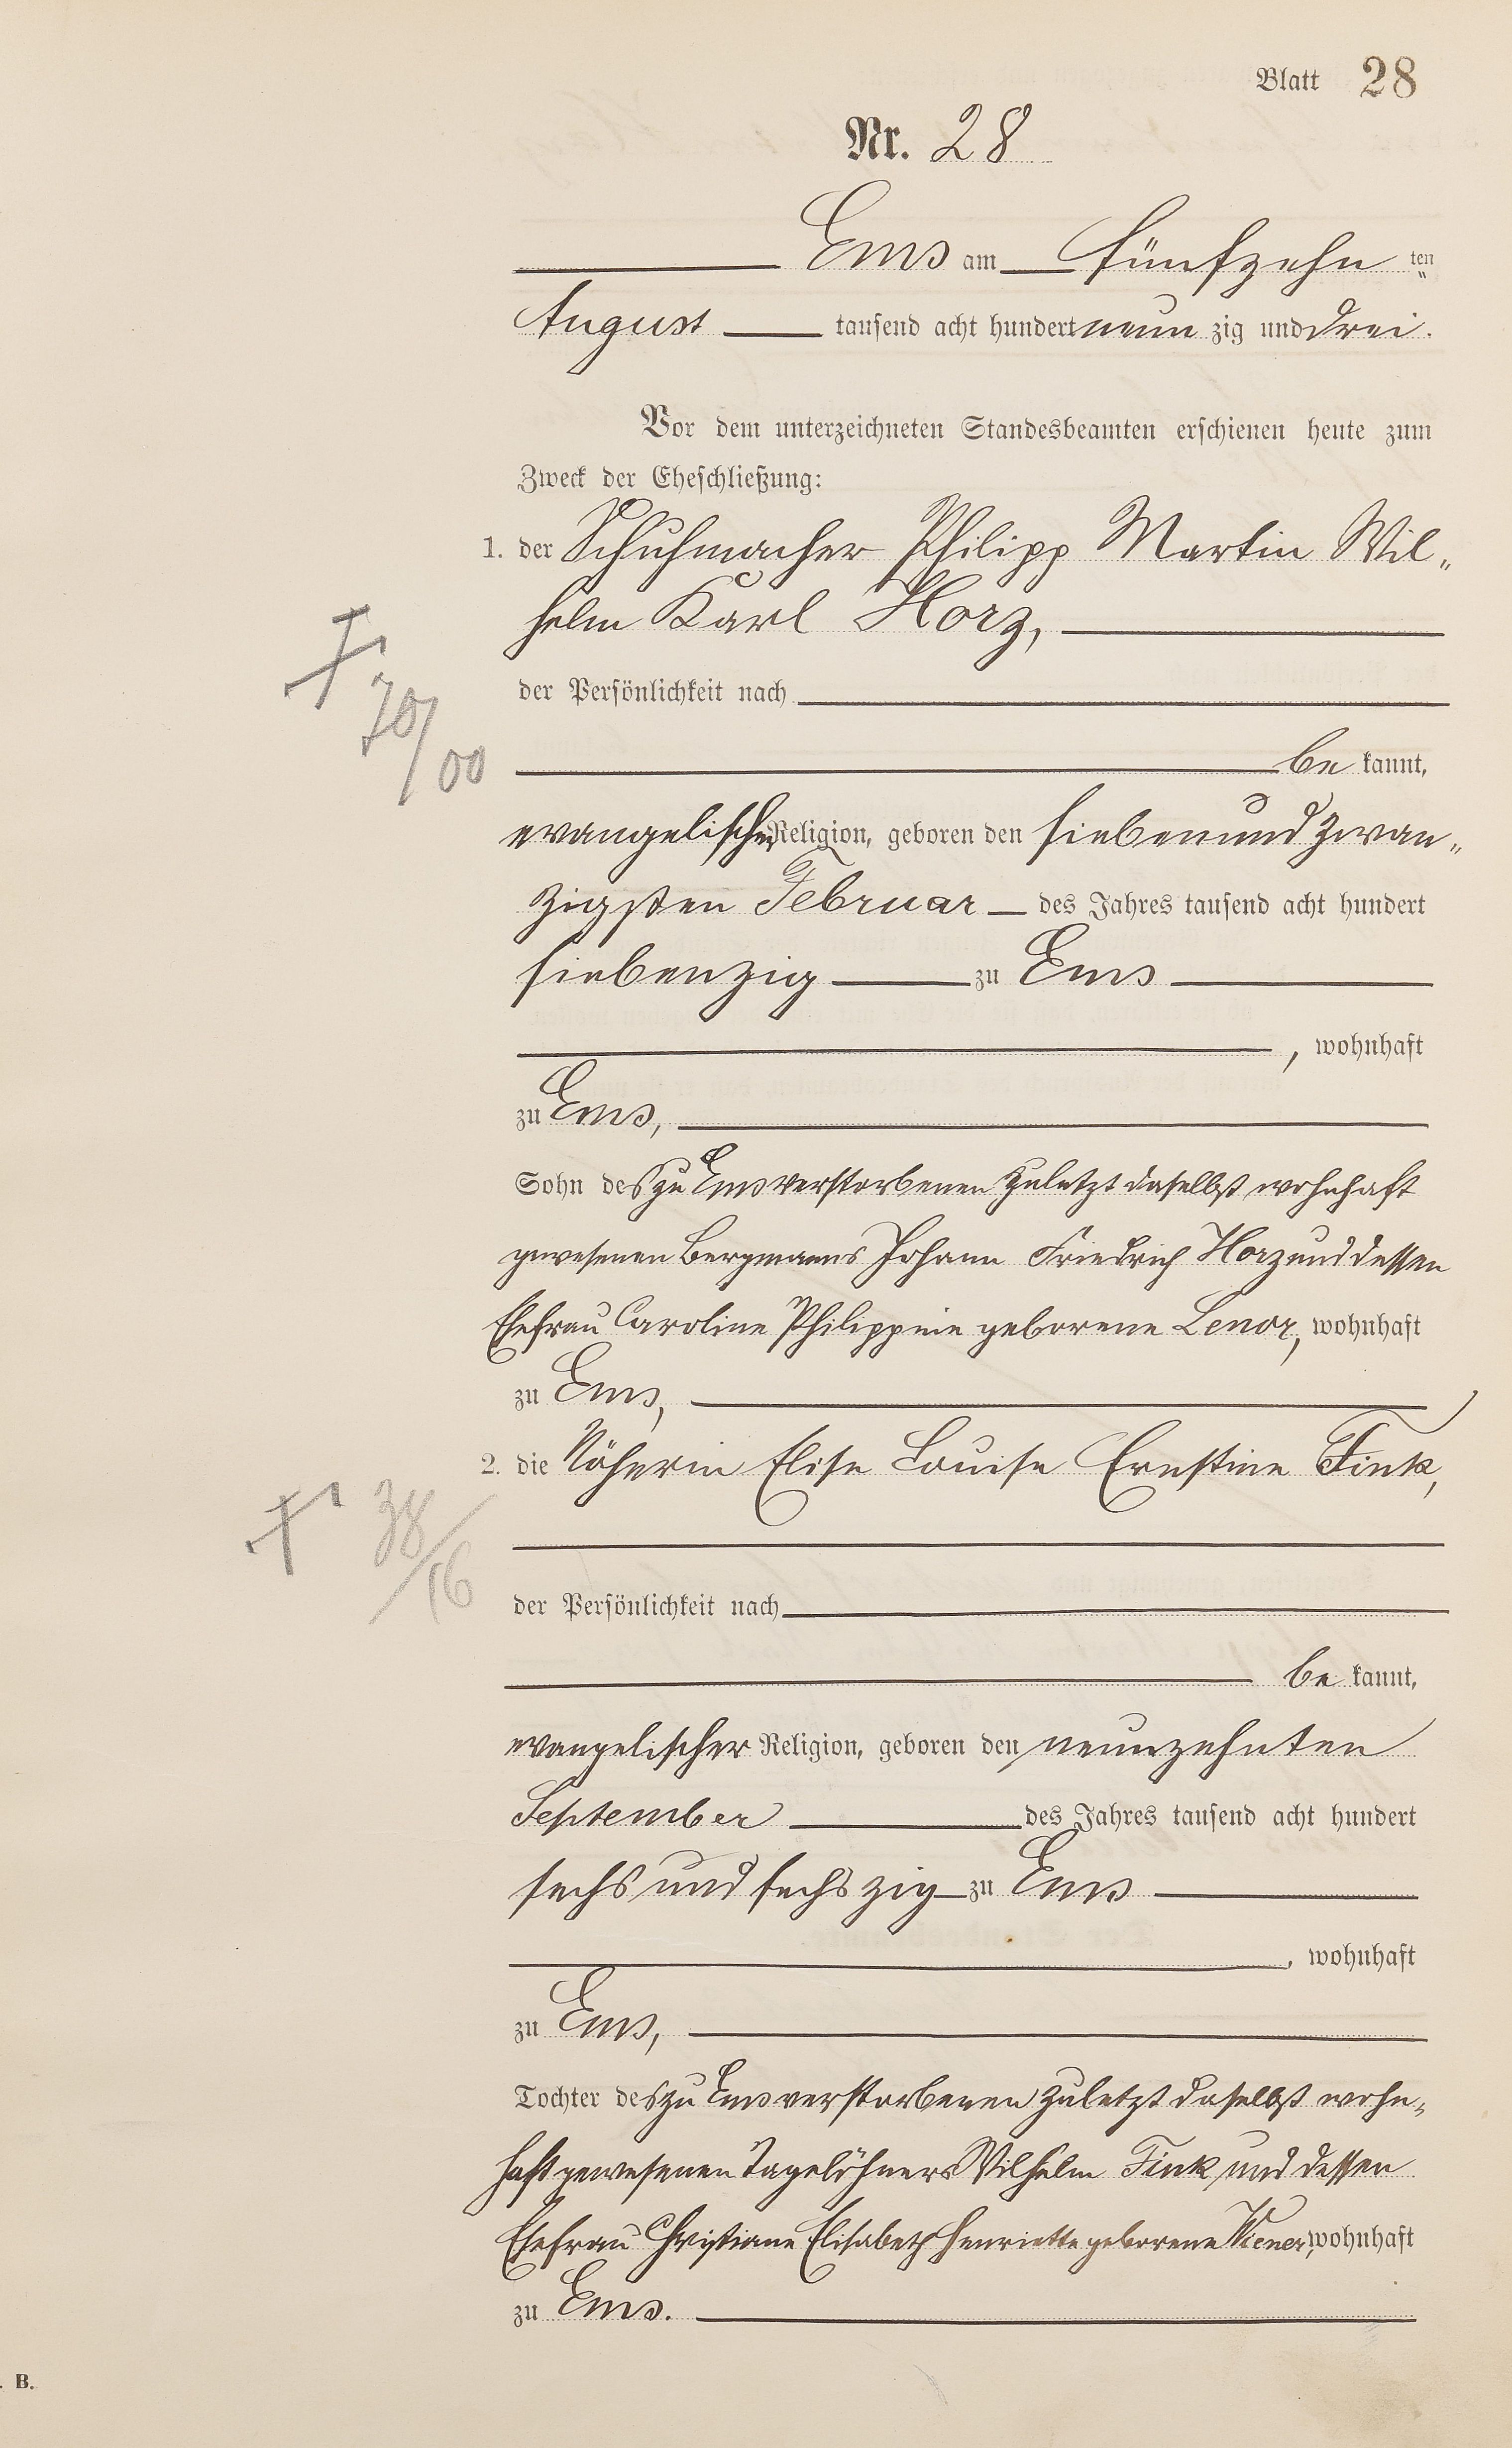 Blatt 28
Nr. 28
Ems am fünfzehn ten
August tausend acht hundert neun zig und drei.
Vor dem unterzeichneten Standesbeamten erschienen heute zum
Zweck der Eheschließung:
1. der Schuhmacher Philipp Martin Wil„
helm Karl Horz,
der Persönlichkeit nach
be kannt,
evangelischer Religion, geboren den siebenundzwan„
zigsten Februar des Jahres tausend acht hundert
siebenzig zu Ems
, wohnhaft
zu Ems,
Sohn des zu Ems verstorbenen zuletzt daselbst wohnhaft
gewesenen Bergmanns Johann Friedrich Horz und dessen
Ehefrau Caroline Philippine geborene Lenor, wohnhaft
zu Ems,
† 70/00
2. die Näherin Elise Louise Ernestine Fink,
der Persönlichkeit nach
be kannt,
evangelischer Religion, geboren den neunzehnten
September des Jahres tausend acht hundert
sechs und sechszig zu Ems
, wohnhaft
zu Ems,
Tochter des zu Ems verstorbenen zuletzt daselbst wohn„
haft gewesenen Tagelöhners Wilhelm Fink und dessen
Ehefrau Christiane Elisabeth Henriette geborene Wiener, wohnhaft
zu Ems.
† 38/16
. B.